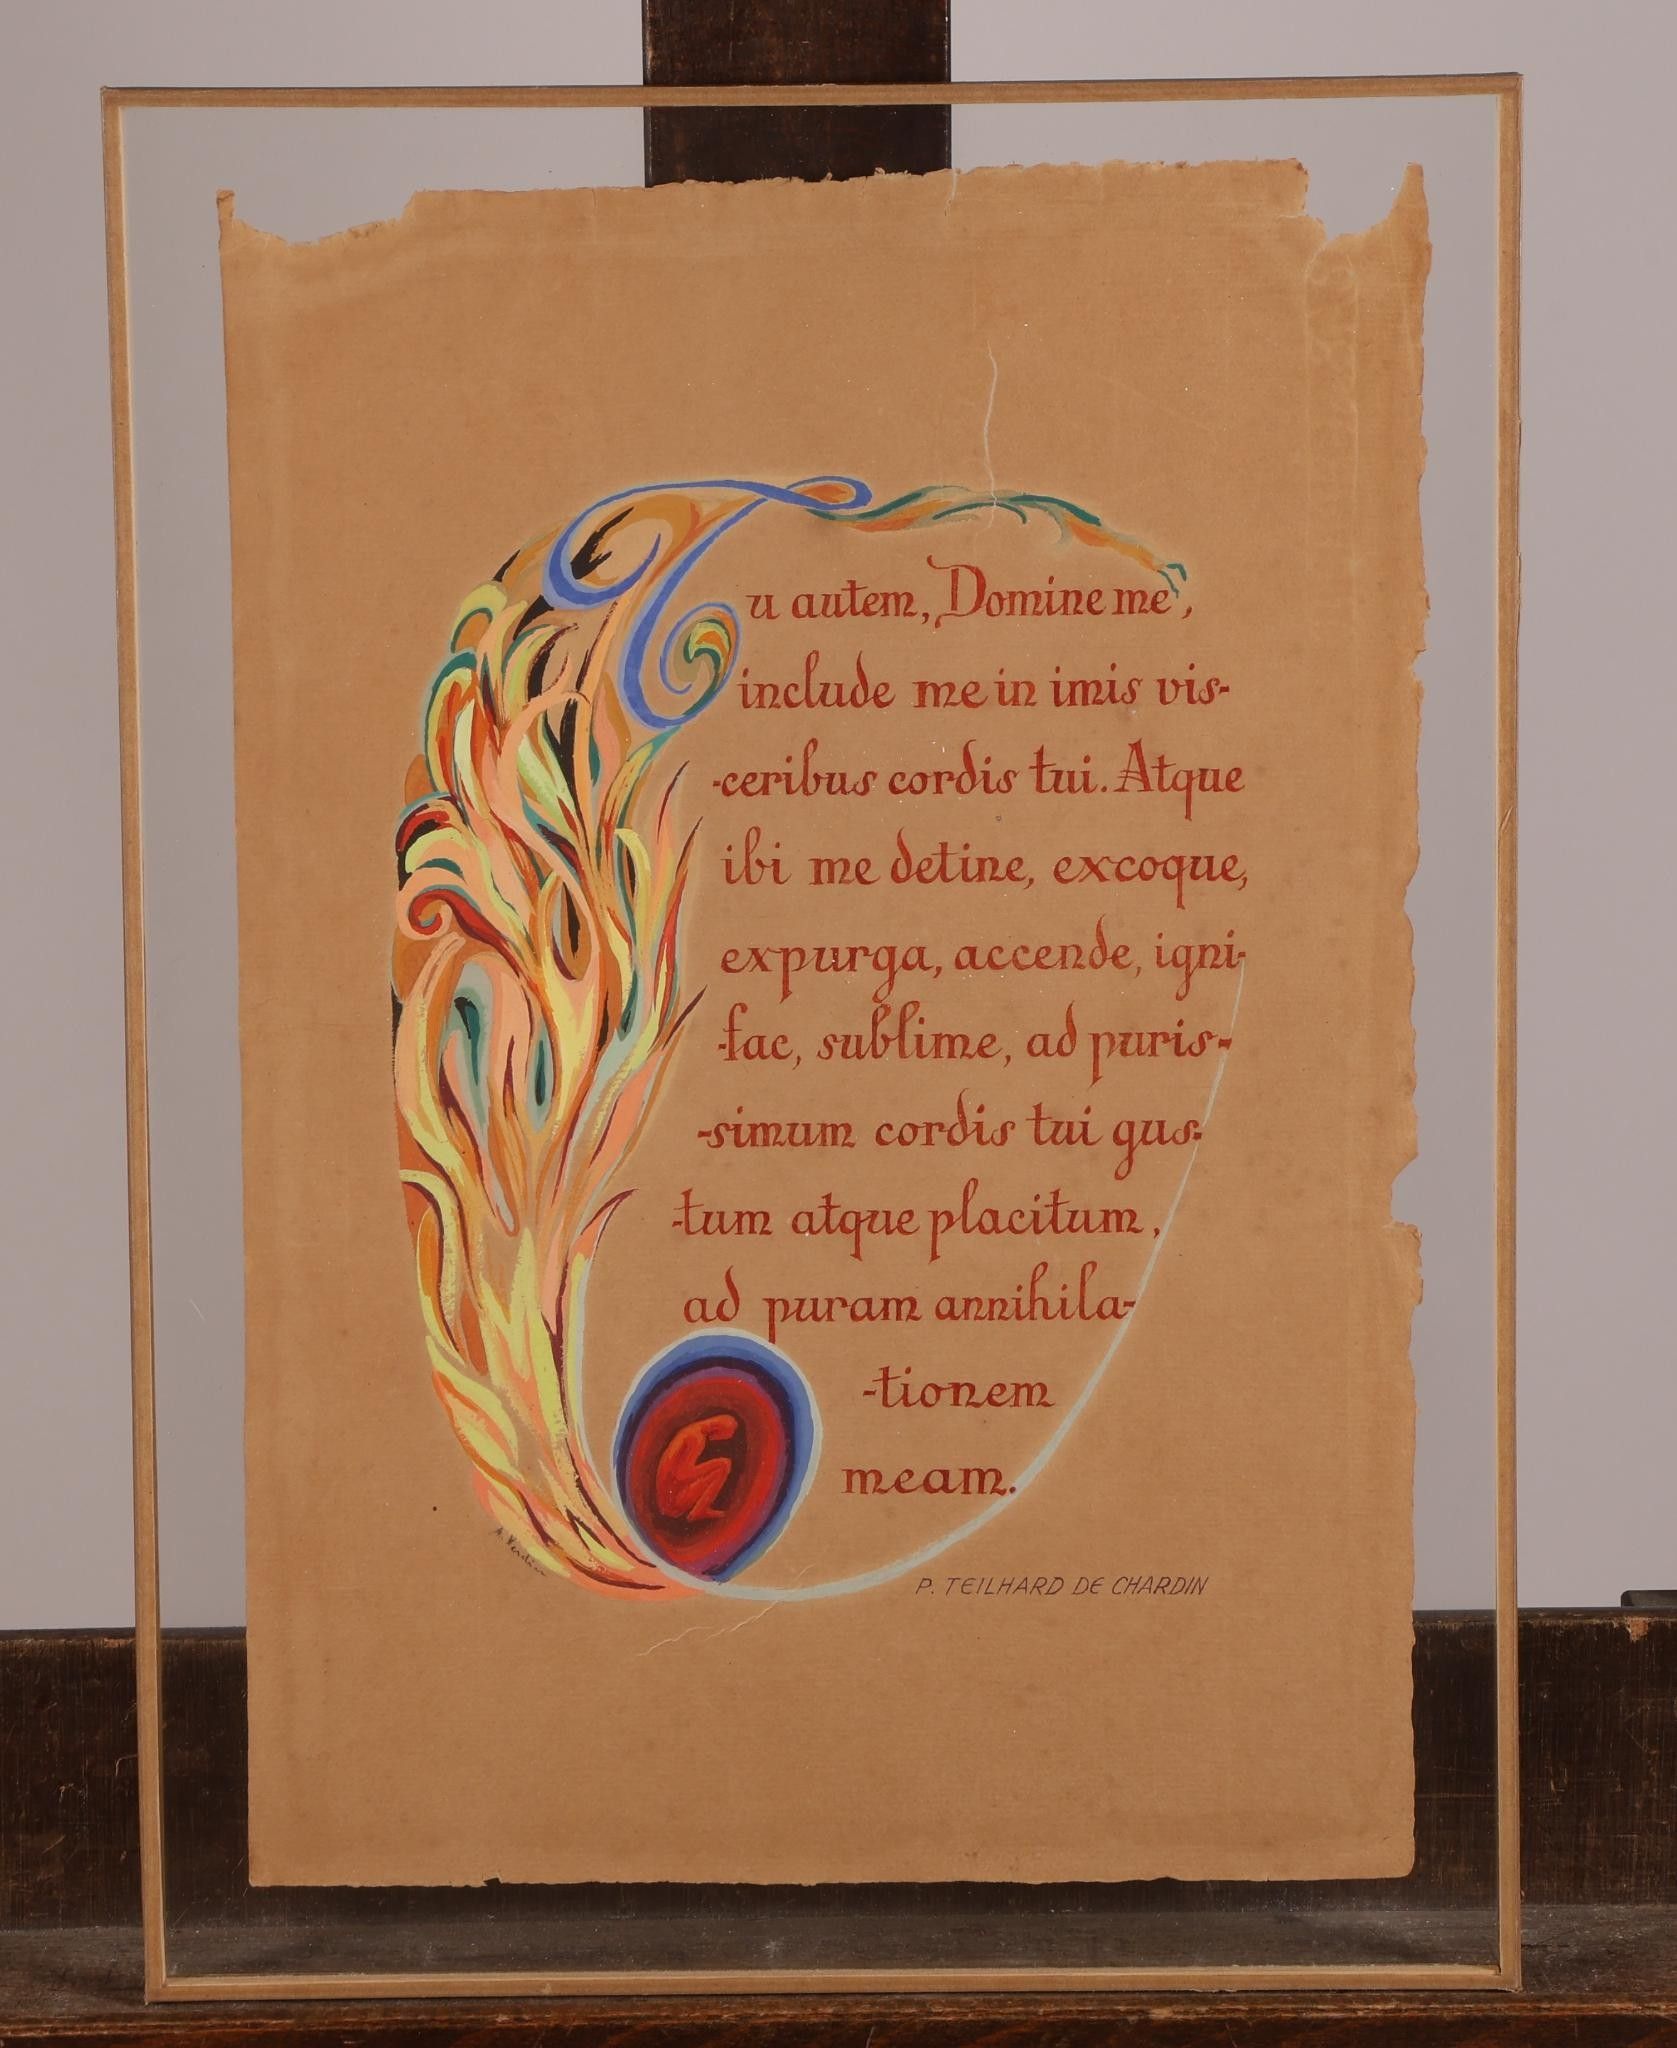 Tu autem, Domine me,
include me in imis vis-
-ceribus cordis tui. Atque
ibi me detine, excoque,
expurga, accende, igni-
-fac, sublime, ad puris-
-simum cordis tui gus-
-tum atque placitum,
ad puram annihila-
-tionem
meam.
P. TEILHARD DE CHARDIN